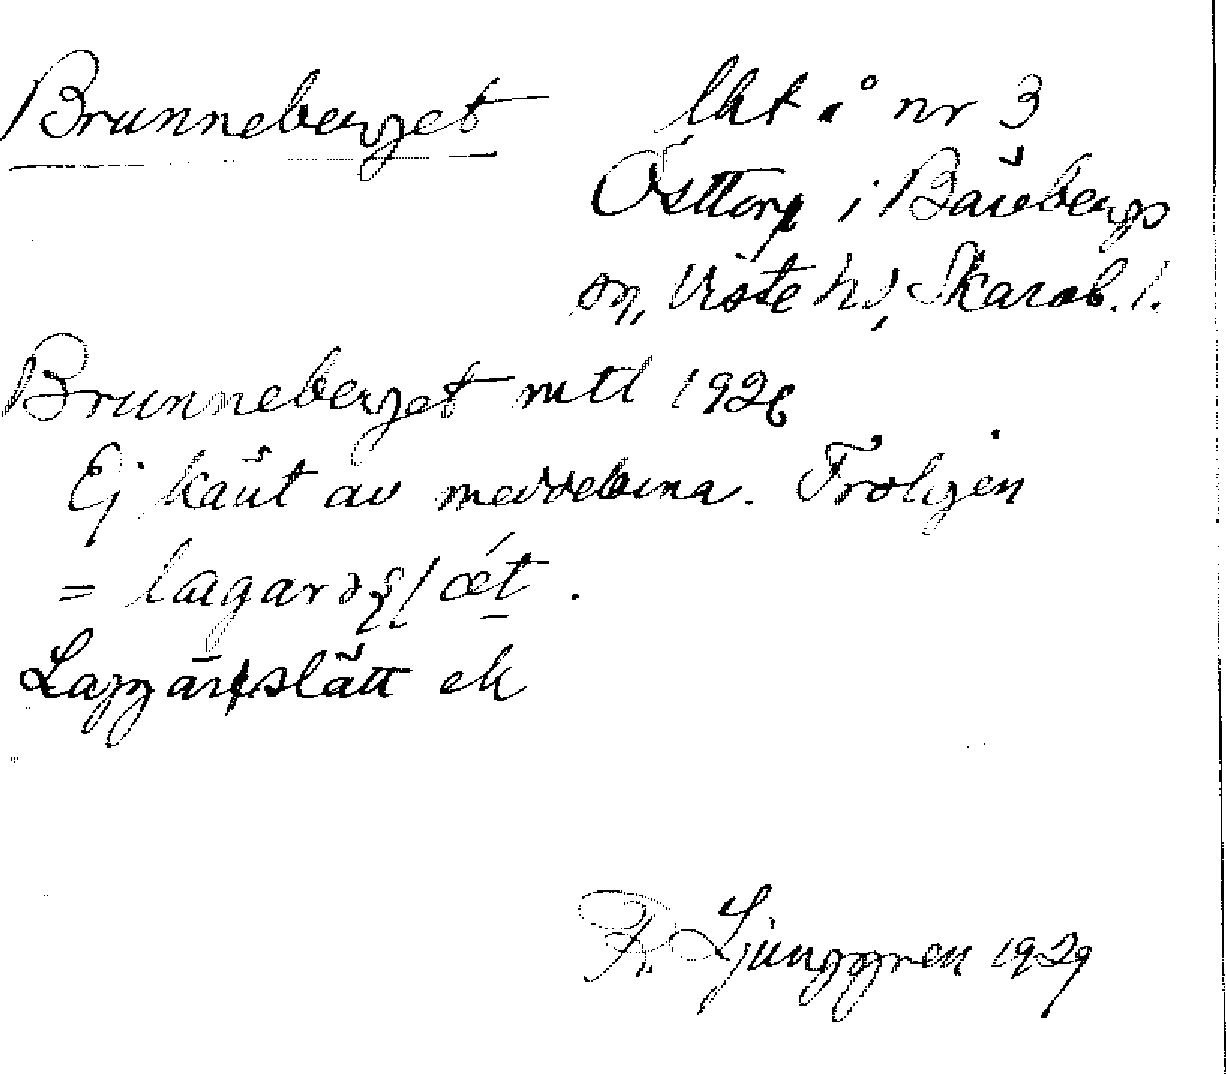 Brunneberget lht å nr 3
Östtorp i Bärebergs
sn, Viste hd, Skarab. l.
Brunneberget mtl 1926
Ej känt av meddelarna. Troligen
=
Laggärdslätt ek
Fr. Ljunggren 1929